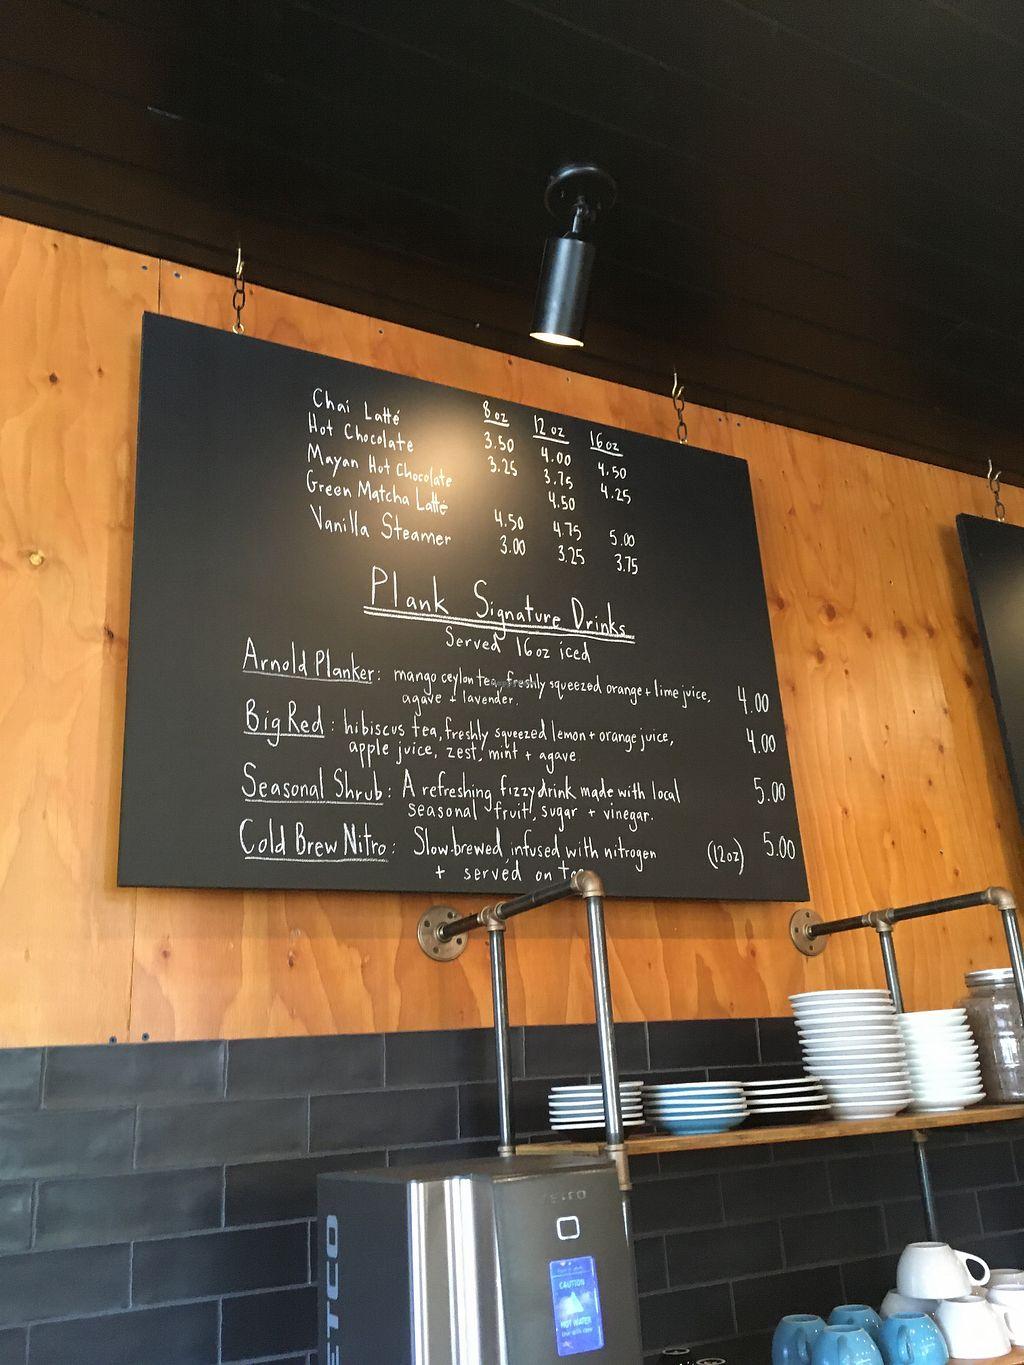 8 oz 12 oz 16 oz
Chai Latté 3.50 4.00 4.50
Hot Chocolate 3.25 3.75 4.25
Mayan Hot Chocolate 4.50
Green Matcha Latté 4.50 4.75 5.00
Vanilla Steamer 3.00 3.25 3.75
Plank Signature Drinks
Served 16oz iced
Arnold Planker: mango ceylon tea, freshly squeezed orange + lime juice, 4.00
agave + lavender.
Big Red: hibiscus tea, freshly squeezed lemon + orange juice, 4.00
apple juice, zest, mint + agave.
Seasonal Shrub: A refreshing fizzy drink made with local 5.00
seasonal fruit, sugar + vinegar.
Cold Brew Nitro: Slow.brewed infused with nitrogen (12oz) 5.00
+ served on
ETCO
CAUTION
HOT WATER